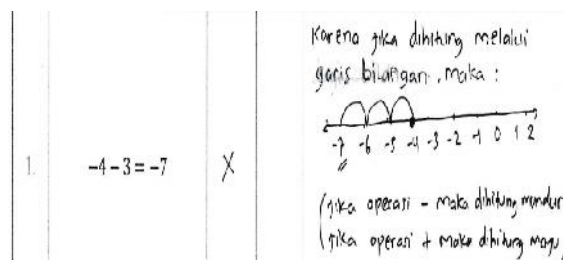 Karena jika dihitung melalui
garis bilangan, maka :
-7 -6 -5 -4 -3 -2 -1 0 1 2
1. -4 - 3 = -7 X
(jika operasi - maka dihitung mundur
(jika operasi + maka dihitung maju